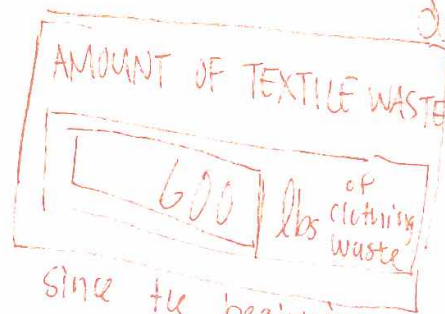 AMOUNT OF TEXTILE WASTE
600 lbs of clothing waste
since the